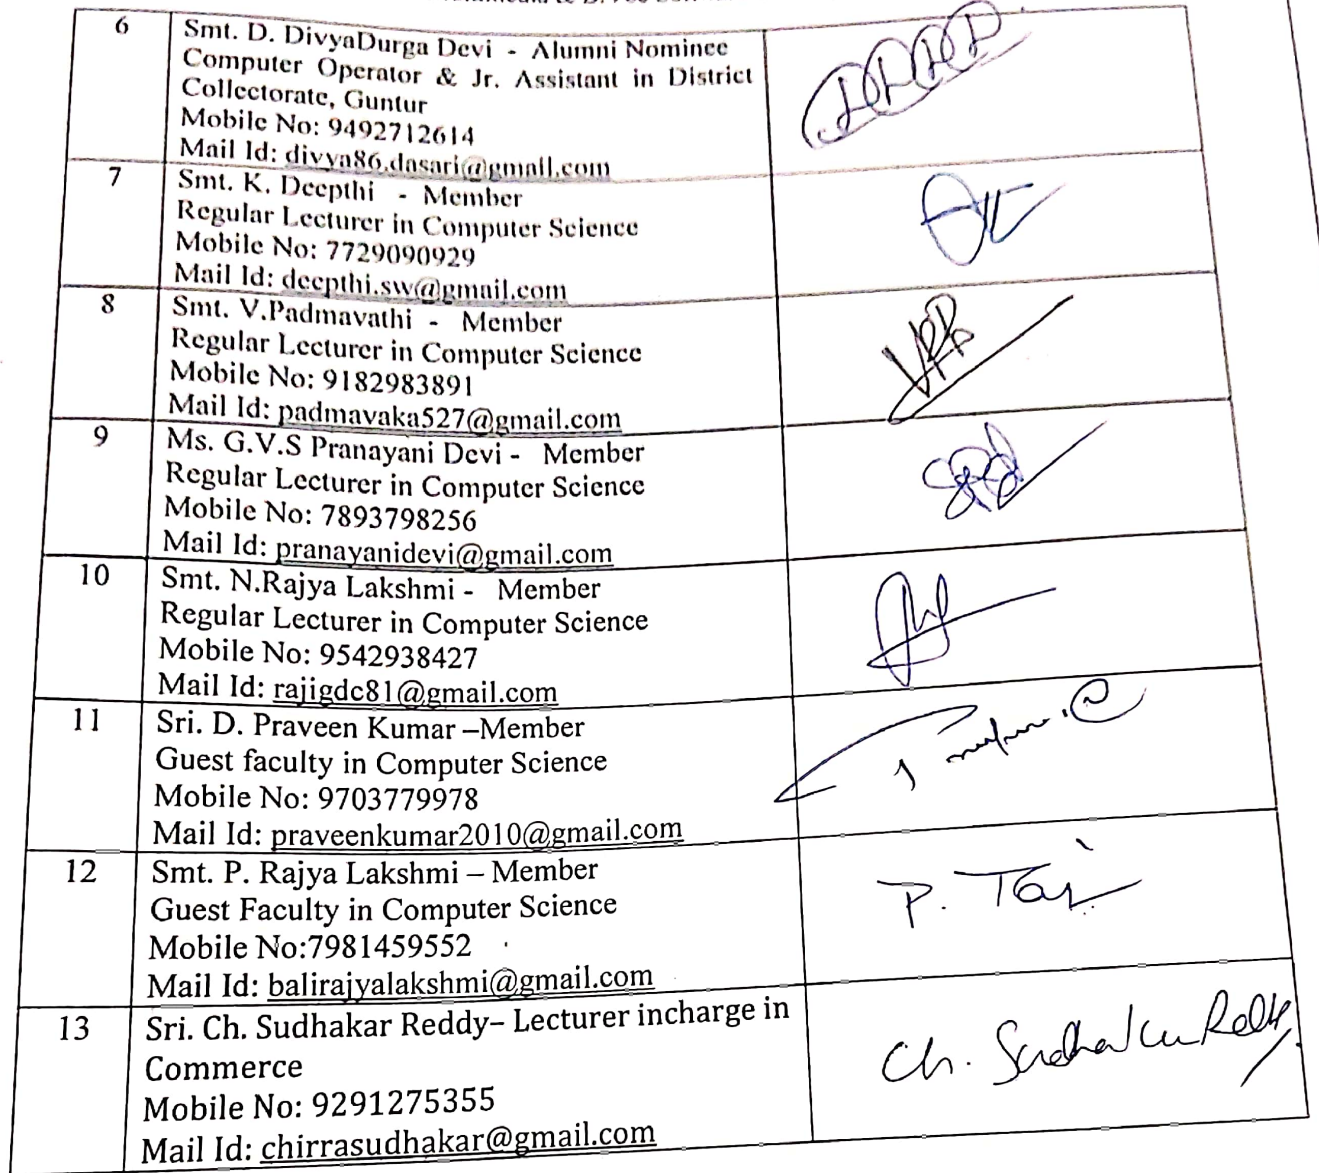 6
Smt. D. DivyaDurga Devi - Alumni Nominee
Computer Operator & Jr. Assistant in District
Collectorate, Guntur
Mobile No: 9492712614
Mail Id: divya86.dasari@gmail.com
7
Smt. K. Deepthi - Member
Regular Lecturer in Computer Science
Mobile No: 7729090929
Mail Id: deepthi.sw@gmail.com
8
Smt. V.Padmavathi - Member
Regular Lecturer in Computer Science
Mobile No: 9182983891
Mail Id: padmavaka527@gmail.com
9
Ms. G.V.S Pranayani Devi - Member
Regular Lecturer in Computer Science
Mobile No: 7893798256
Mail Id: pranayanidevi@gmail.com
10
Smt. N.Rajya Lakshmi - Member
Regular Lecturer in Computer Science
Mobile No: 9542938427
Mail Id: rajigdc81@gmail.com
11
Sri. D. Praveen Kumar –Member
Guest faculty in Computer Science
Mobile No: 9703779978
Mail Id: praveenkumar2010@gmail.com
12
Smt. P. Rajya Lakshmi – Member
Guest Faculty in Computer Science
Mobile No:7981459552
Mail Id: balirajyalakshmi@gmail.com
P.
13
Sri. Ch. Sudhakar Reddy– Lecturer incharge in
Commerce
Mobile No: 9291275355
Mail Id: chirrasudhakar@gmail.com
Ch. Sudhakar Reddy